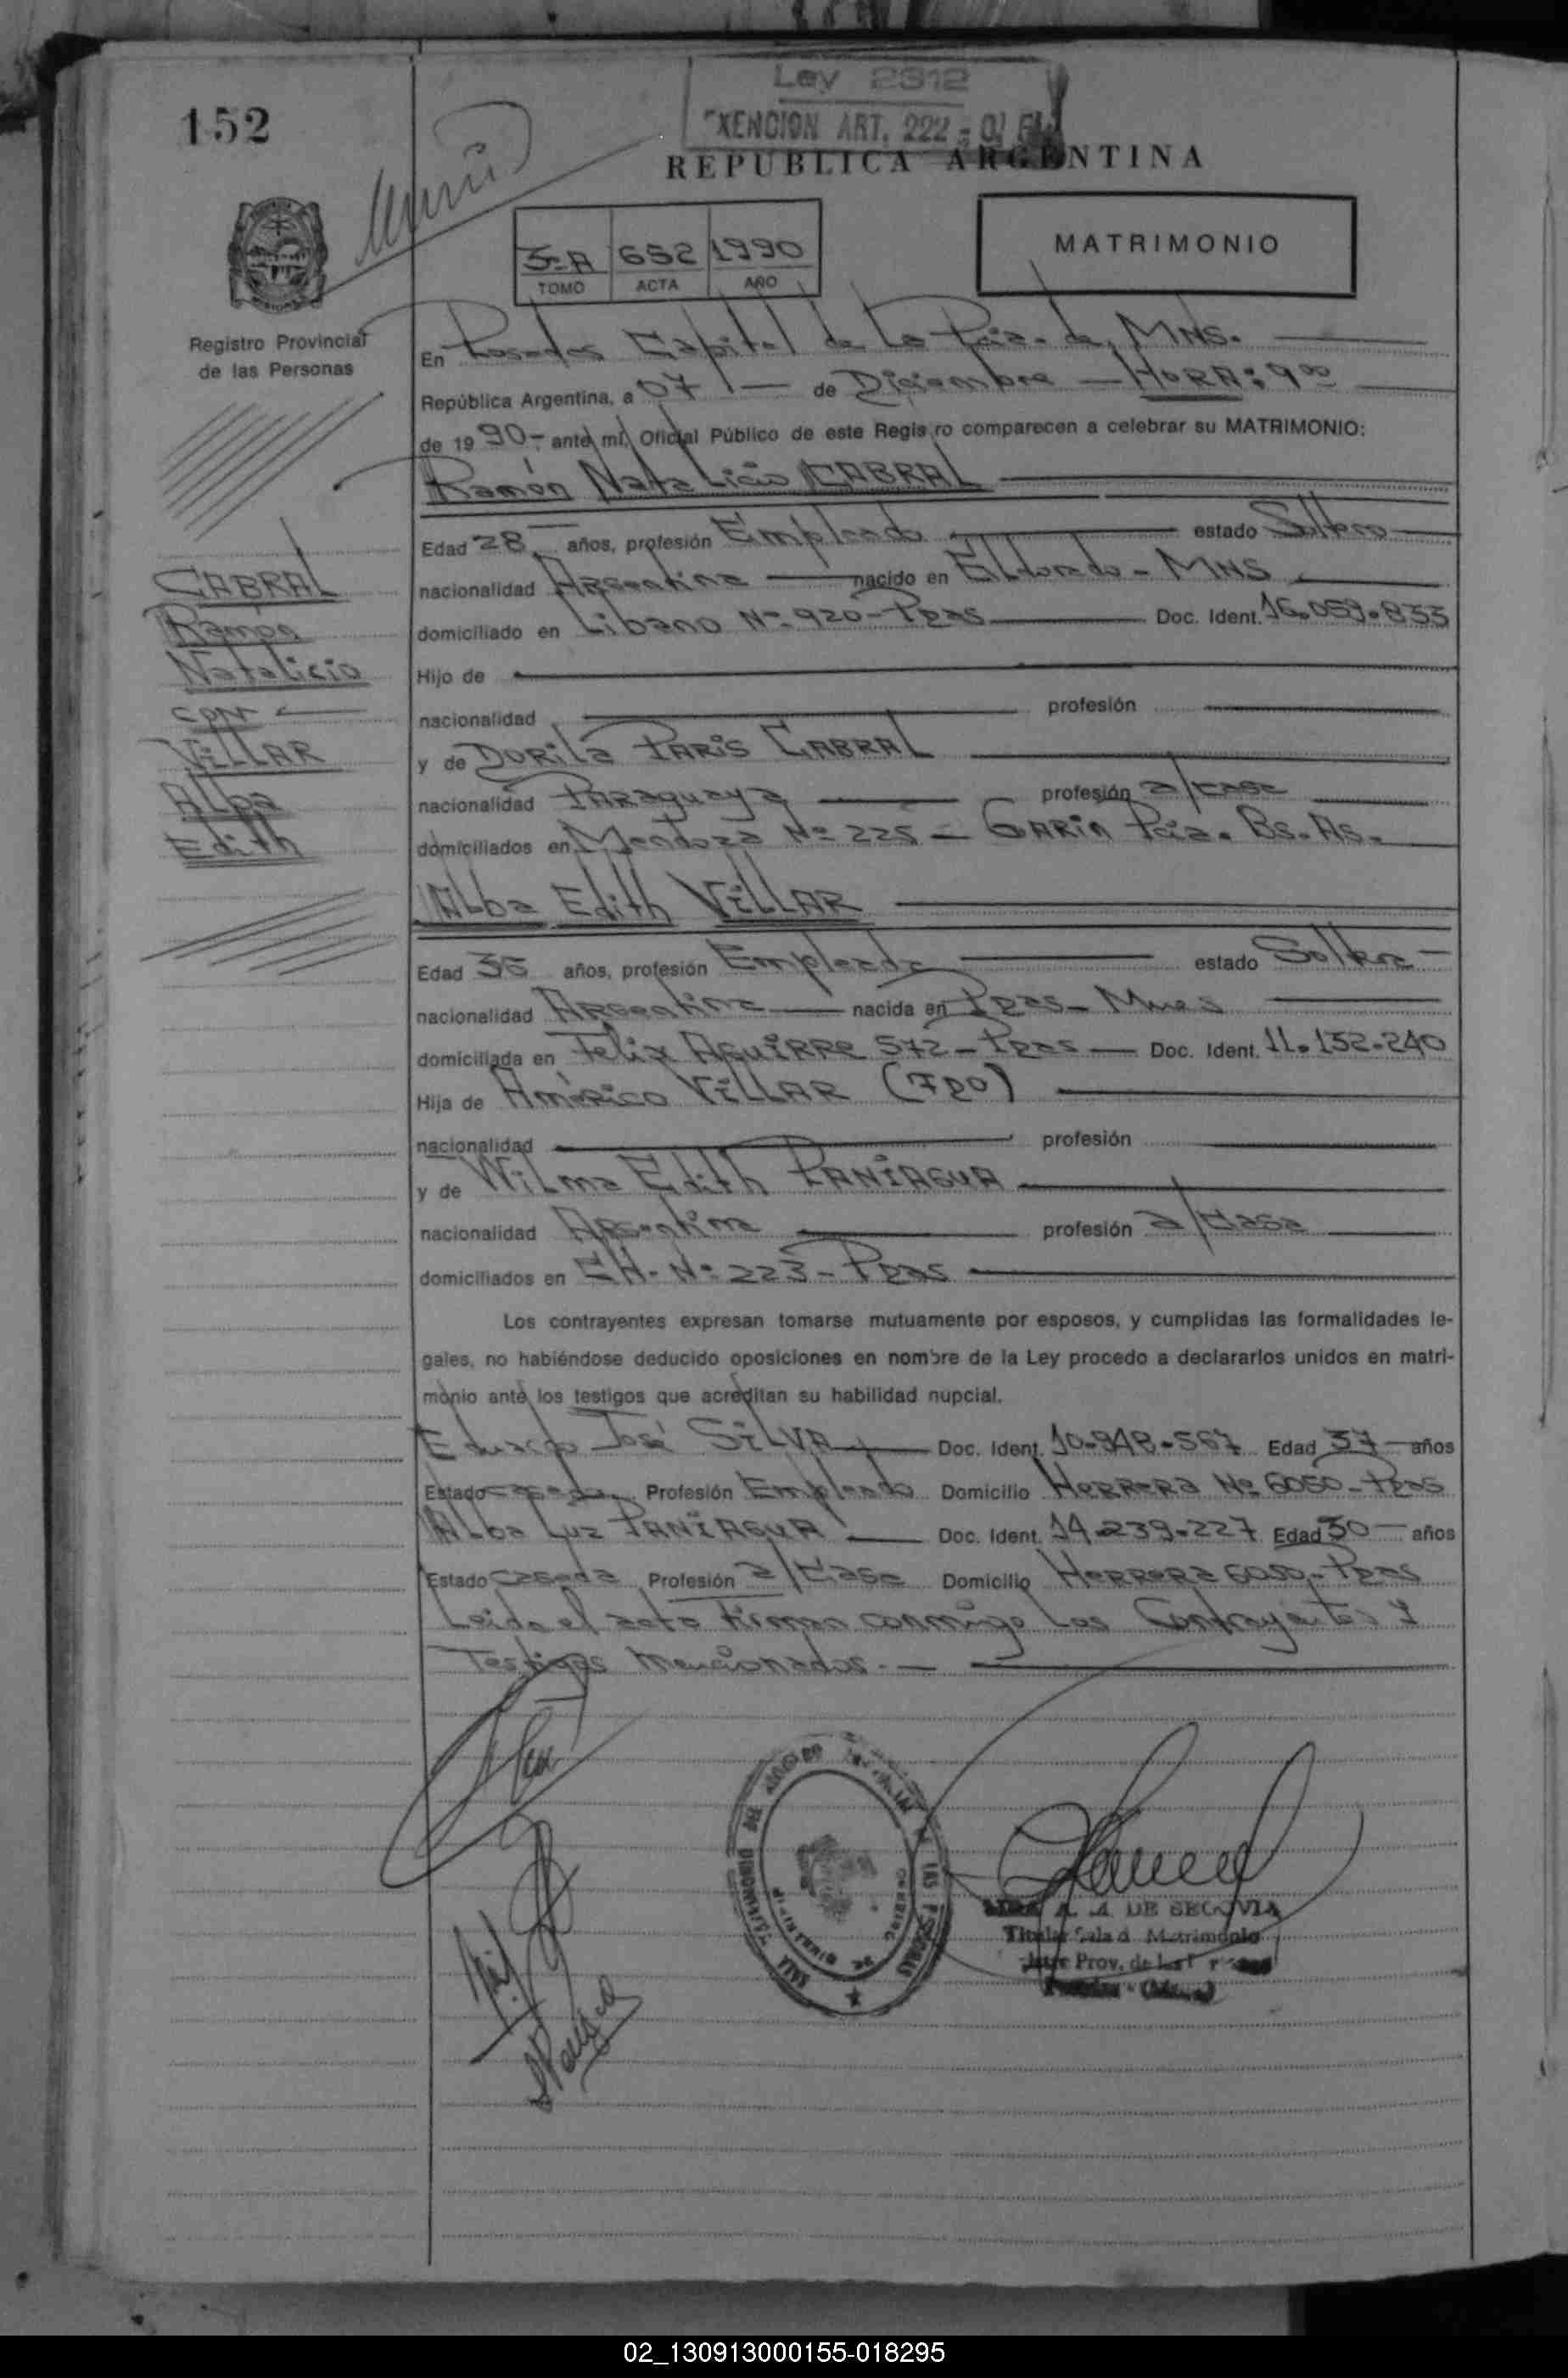 152
Ley 2312
EXENCION ART. 222
REPUBLICA ARGENTINA
3º-A 652 1990
TOMO ACTA AÑO
MATRIMONIO
Registro Provincial
de las Personas
En Posadas Capital de La Pcia. de MNS.
República Argentina, a 07 - de Diciembre - HORA: 9 00
de 1990 - ante mí, Oficial Público de este Registro comparecen a celebrar su MATRIMONIO:
Ramón Natalicio CABRAL
Edad 28 años, profesión Empleado estado Soltero
nacionalidad Argentina nacido en Eldorado - MNS
domiciliado en Libano Nº 920 - Pdas Doc. Ident. 16.059.833
Hijo de
nacionalidad profesión
y de DORila PARIS CABRAL
nacionalidad PARaguaya profesión a/casa
domiciliados en Mendoza Nº 225 - GARin Pcia. Bs. As.
CABRAL
Ramón
Natalicio
con
VillAR
Alba
Edith
Alba Edith VillAR
Edad 35 años, profesión Empleada estado Soltera -
nacionalidad Argentina nacida en Pdas - Mnes
domiciliada en Felix AguiRRe 572 - Pdas - Doc. Ident. 11.132.240
Hija de Américo VillAR (Fdo)
nacionalidad profesión
y de Wilma Edith PANiAGUA
nacionalidad Argentina profesión a/casa
domiciliados en CH. Nº 223 - Pdas
Los contrayentes expresan tomarse mutuamente por esposos, y cumplidas las formalidades le-
gales, no habiéndose deducido oposiciones en nombre de la Ley procedo a declararlos unidos en matri-
monio ante los testigos que acreditan su habilidad nupcial.
Eduardo José SilVA Doc. Ident. 10.948.567 Edad 37 - años
Estado casado Profesión Empleado Domicilio HeRReRa Nº 6050 - Pdas
Alba Luz PANiAGUA Doc. Ident. 14.239.227 Edad 30 - años
Estado casada Profesión a/casa Domicilio HeRReRa 6050 - Pdas
Leida el acta firman conmigo los Contrayentes y
Testigos mencionados. -
A. M. DE SEGOVIA
Titular Sala d Matrimonio
Prov. de las
Posadas - (Mnes)
02_130913000155-018295